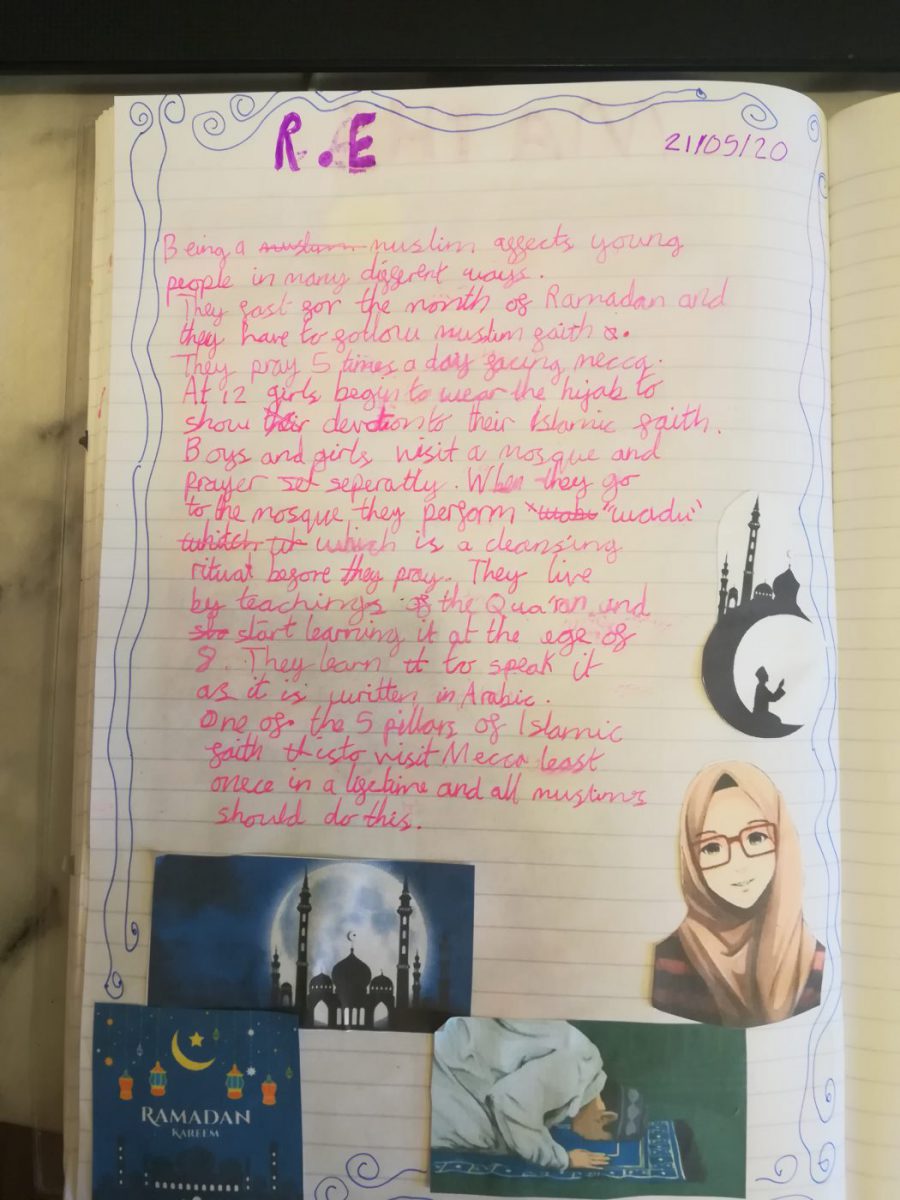 R.E
21/05/20
Being a muslim muslim affects young
people in many different ways.
They fast for the month of Ramadan and
they have to follow muslim faith &.
They pray 5 times a day facing mecca.
At 12 girls begin to wear the hijab to
show their devotion to their Islamic faith.
Boys and girls visit a mosque and
prayer set seperatly. When they go
to the mosque they perform "wabu "wadu"
whitch which is a cleansing
ritual before they pray. They live
by teachings of the Qua'ran and
sto start learning it at the ege of
8. They learn it to speak it
as it is written in Arabic.
One of the 5 pillars of Islamic
faith to visit Mecca least
onece in a lifetime and all muslims
should do this.
RAMADAN
KAREEM